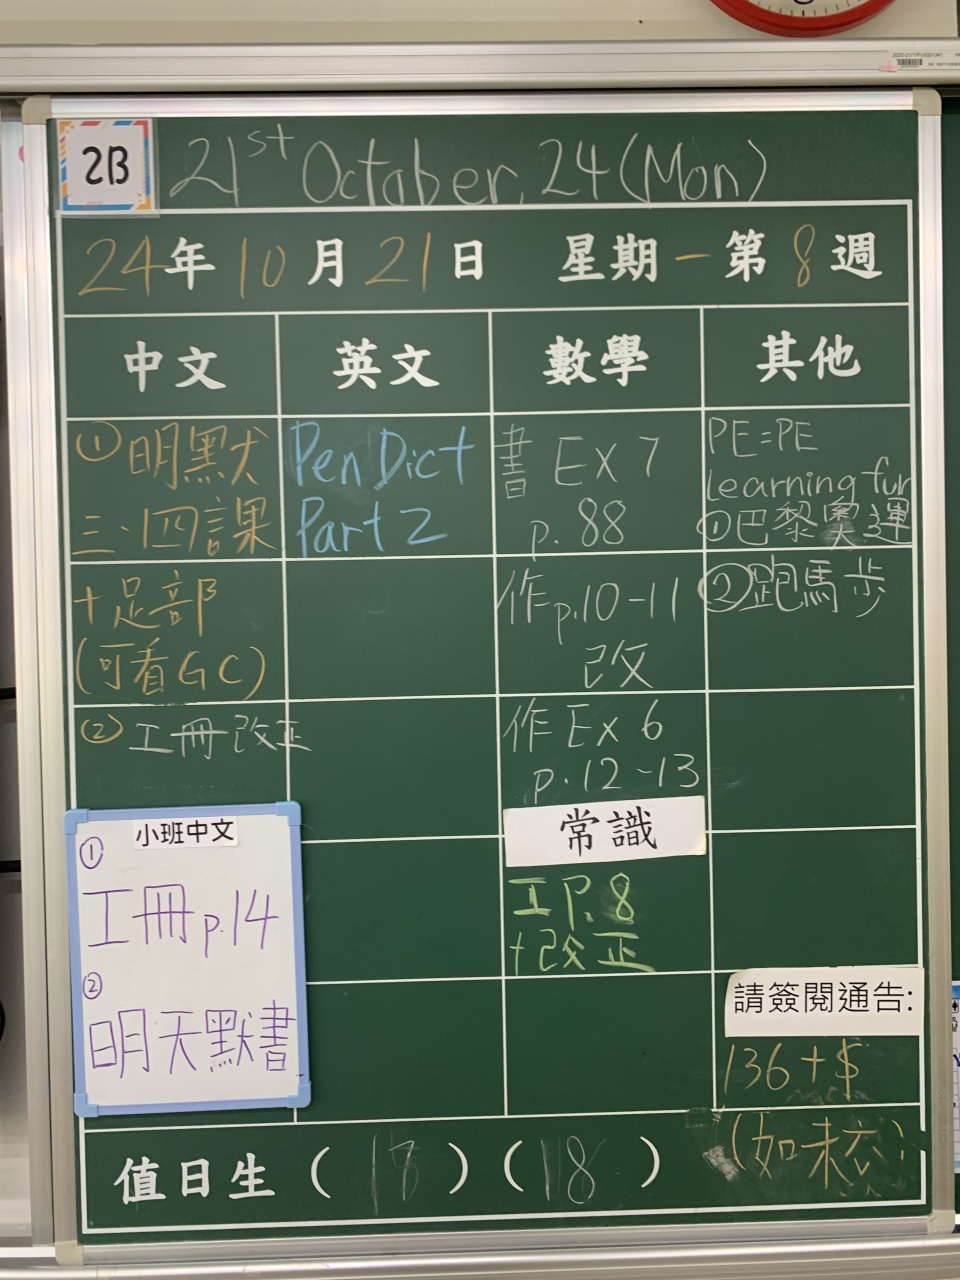 2B
21st October, 24 (Mon)
24年10月21日 星期一 第8週
中文 英文 數學 其他
①明默
三、四課
+足部
(可看GC)
② 工冊改正
小班中文
①
工冊p.14
②
明天默書
Pen Dict
Part 2
書 Ex 7
p. 88
作p.10-11
改
作 Ex 6
p.12-13
常識
工P.8
+改正
PE=PE
Learning fun
①巴黎奧運
②跑馬步
請簽閱通告:
136+$
(如未
值日生( )( 18 )